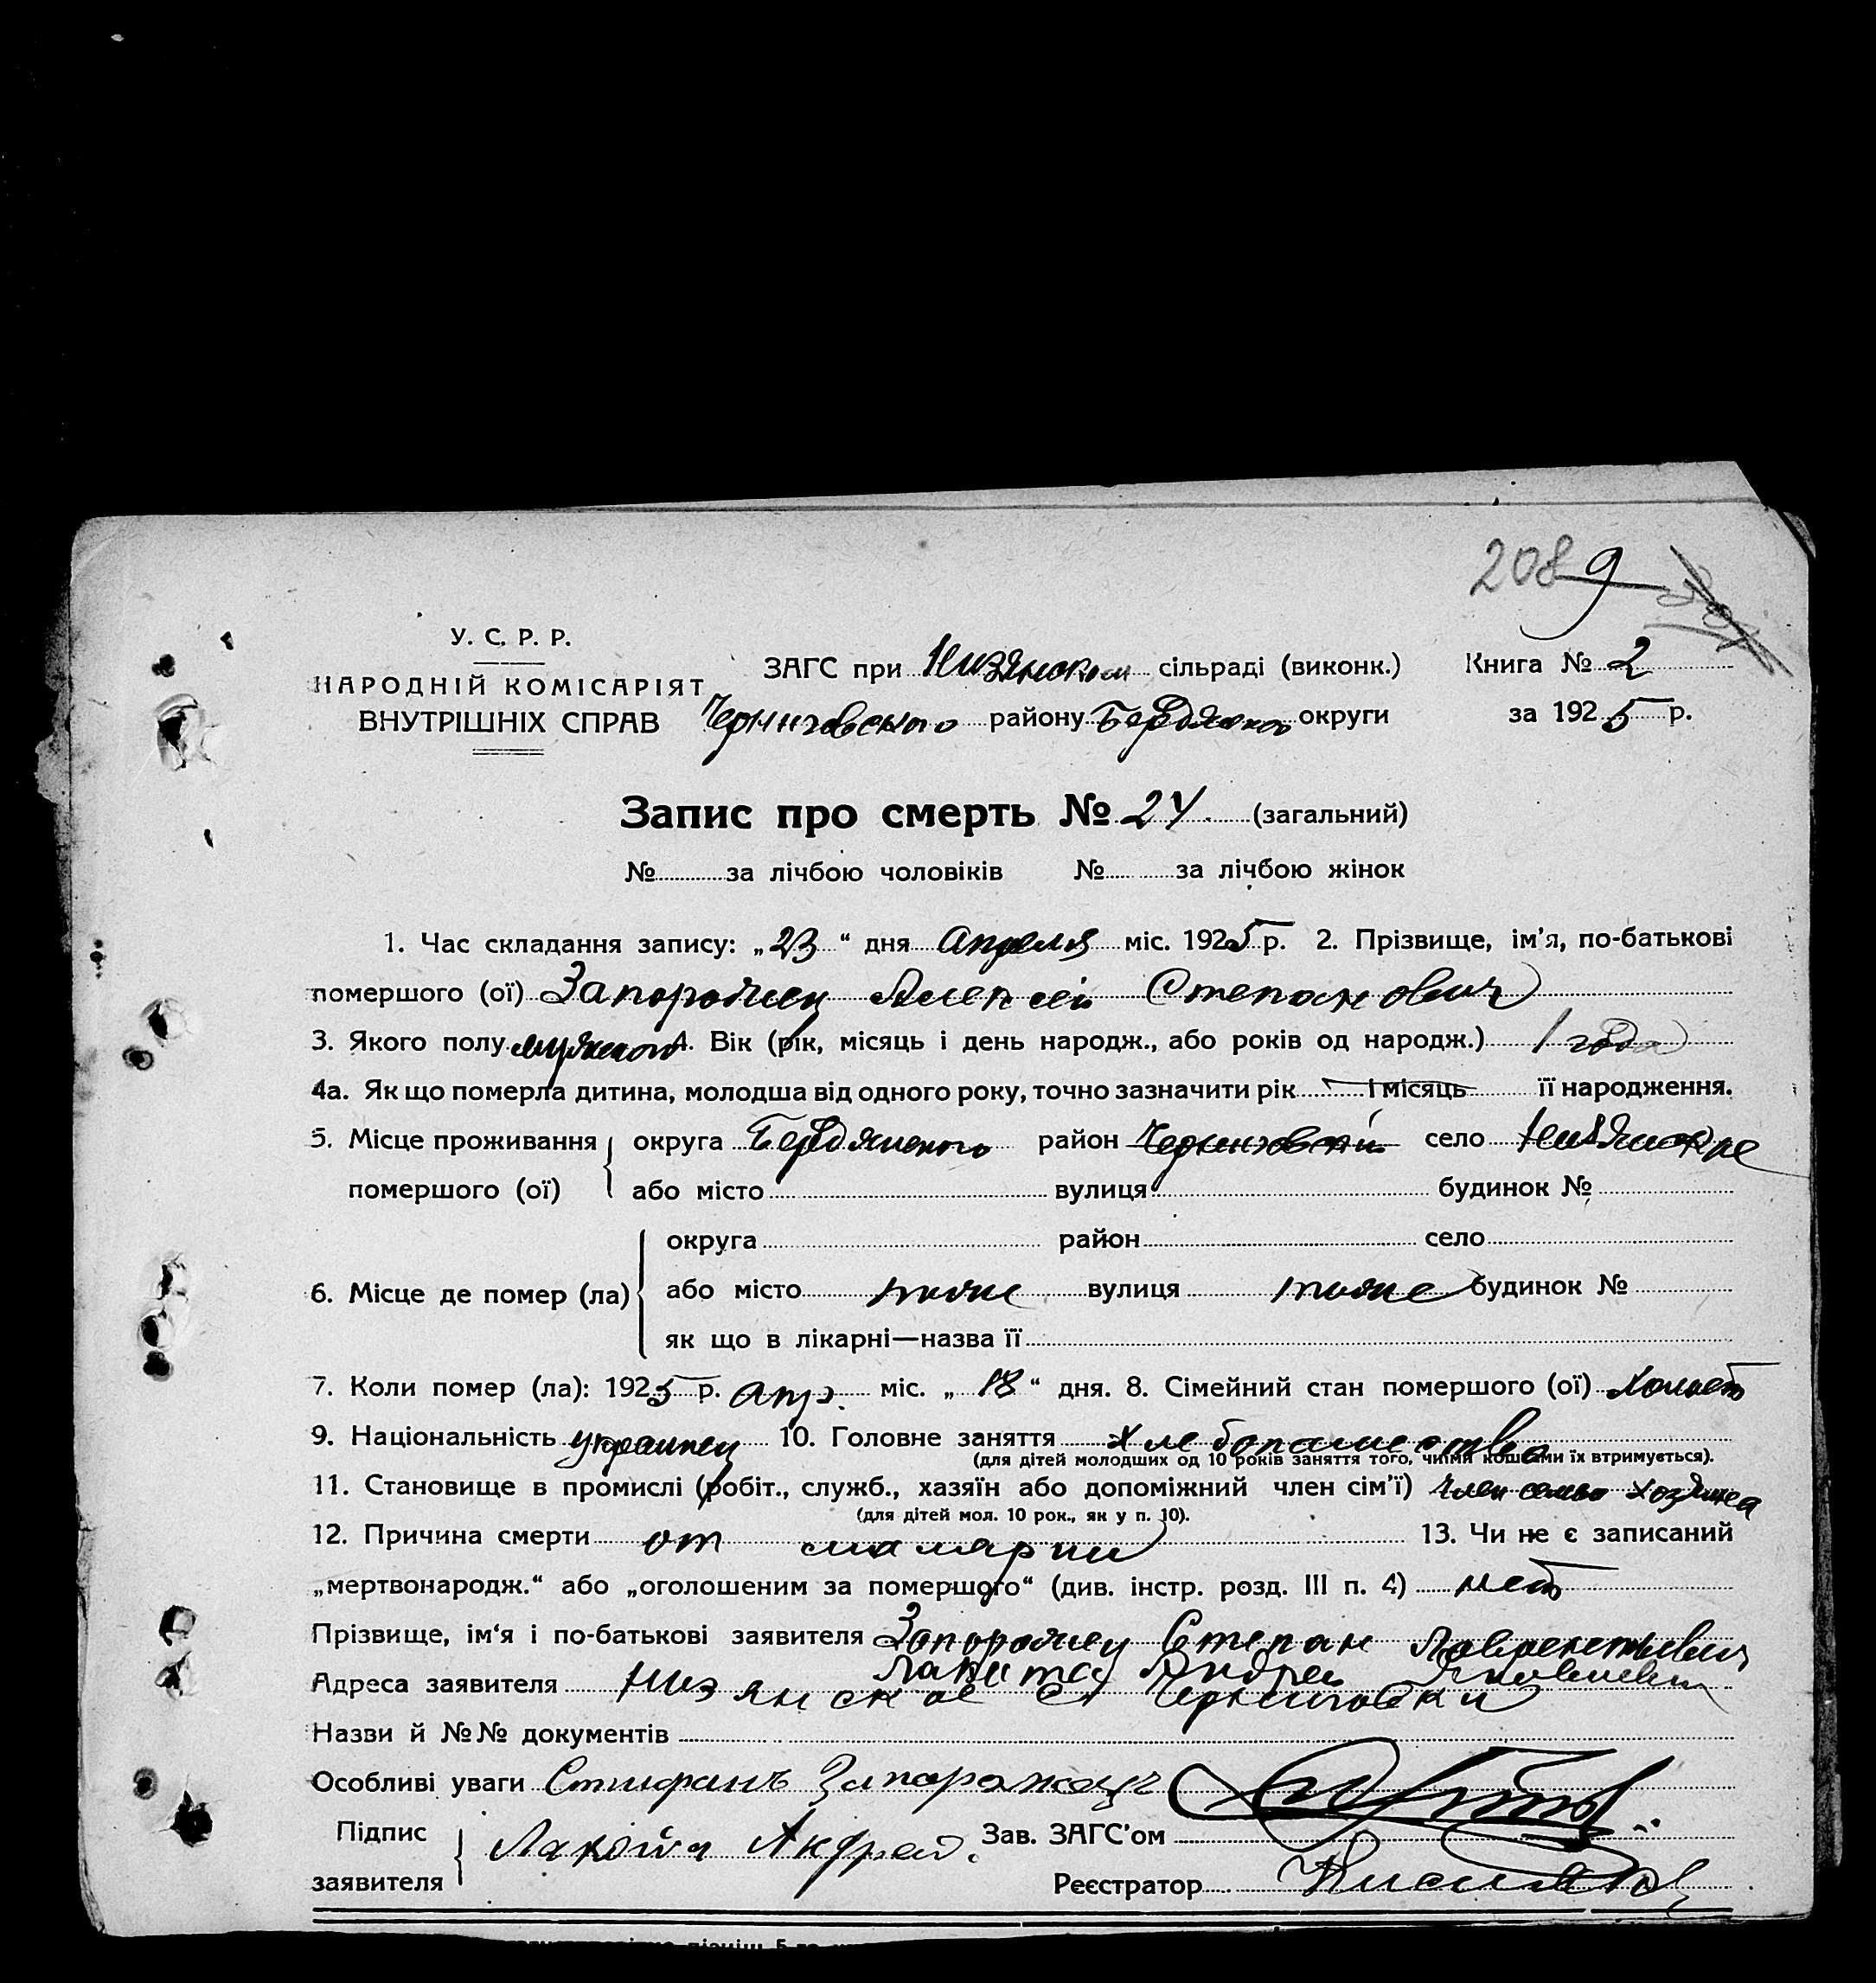 208 9
У. С. Р. Р.
НАРОДНІЙ КОМІСАРІЯТ
ВНУТРІШНІХ СПРАВ
ЗАГС при Низянском сільраді (виконк.) Книга № 2
Черниговского району Бердянского округи за 1925 р.
Запис про смерть № 24 (загальний)
№ за лічбою чоловіків № за лічбою жінок
1. Час складання запису: „23“ дня Апреля міс. 1925 р. 2. Прізвище, ім'я, по-батькові
помершого (ої) Запорожец Алексей Степанович
3. Якого полу мужского 4. Вік (рік, місяць і день народж., або років од народж.) 1 года
4а. Як що померла дитина, молодша від одного року, точно зазначити рік і місяць її народження.
5. Місце проживання округа Бердянского район Черниговский село Низянское
помершого (ої) або місто вулиця будинок №
округа район село
6. Місце де помер (ла) або місто тоже вулиця тоже будинок №
як що в лікарні—назва її
7. Коли помер (ла): 1925 р. апр. міс. „18“ дня. 8. Сімейний стан помершого (ої) холост
9. Національність украинец 10. Головне заняття хлебопашество
(для дітей молодших од 10 років заняття того, чиїми коштами їх втримується).
11. Становище в промислі (робіт., служб., хазяїн або допоміжний член сім'ї) член семьи хозяина
(для дітей мол. 10 рок., як у п. 10).
12. Причина смерти от малярии 13. Чи не є записаний
„мертвонародж.“ або „оголошеним за помершого“ (див. інстр. розд. III п. 4) нет
Прізвище, ім'я і по-батькові заявителя Запорожец Степан Лаврентьевич
Андрей Яковлевич
Адреса заявителя Низянское Черниговки
Назви й №№ документів
Особливі уваги Стифанъ Запорожецъ
Підпис заявителя Лакойза Андрей. Зав. ЗАГС'ом
Реєстратор